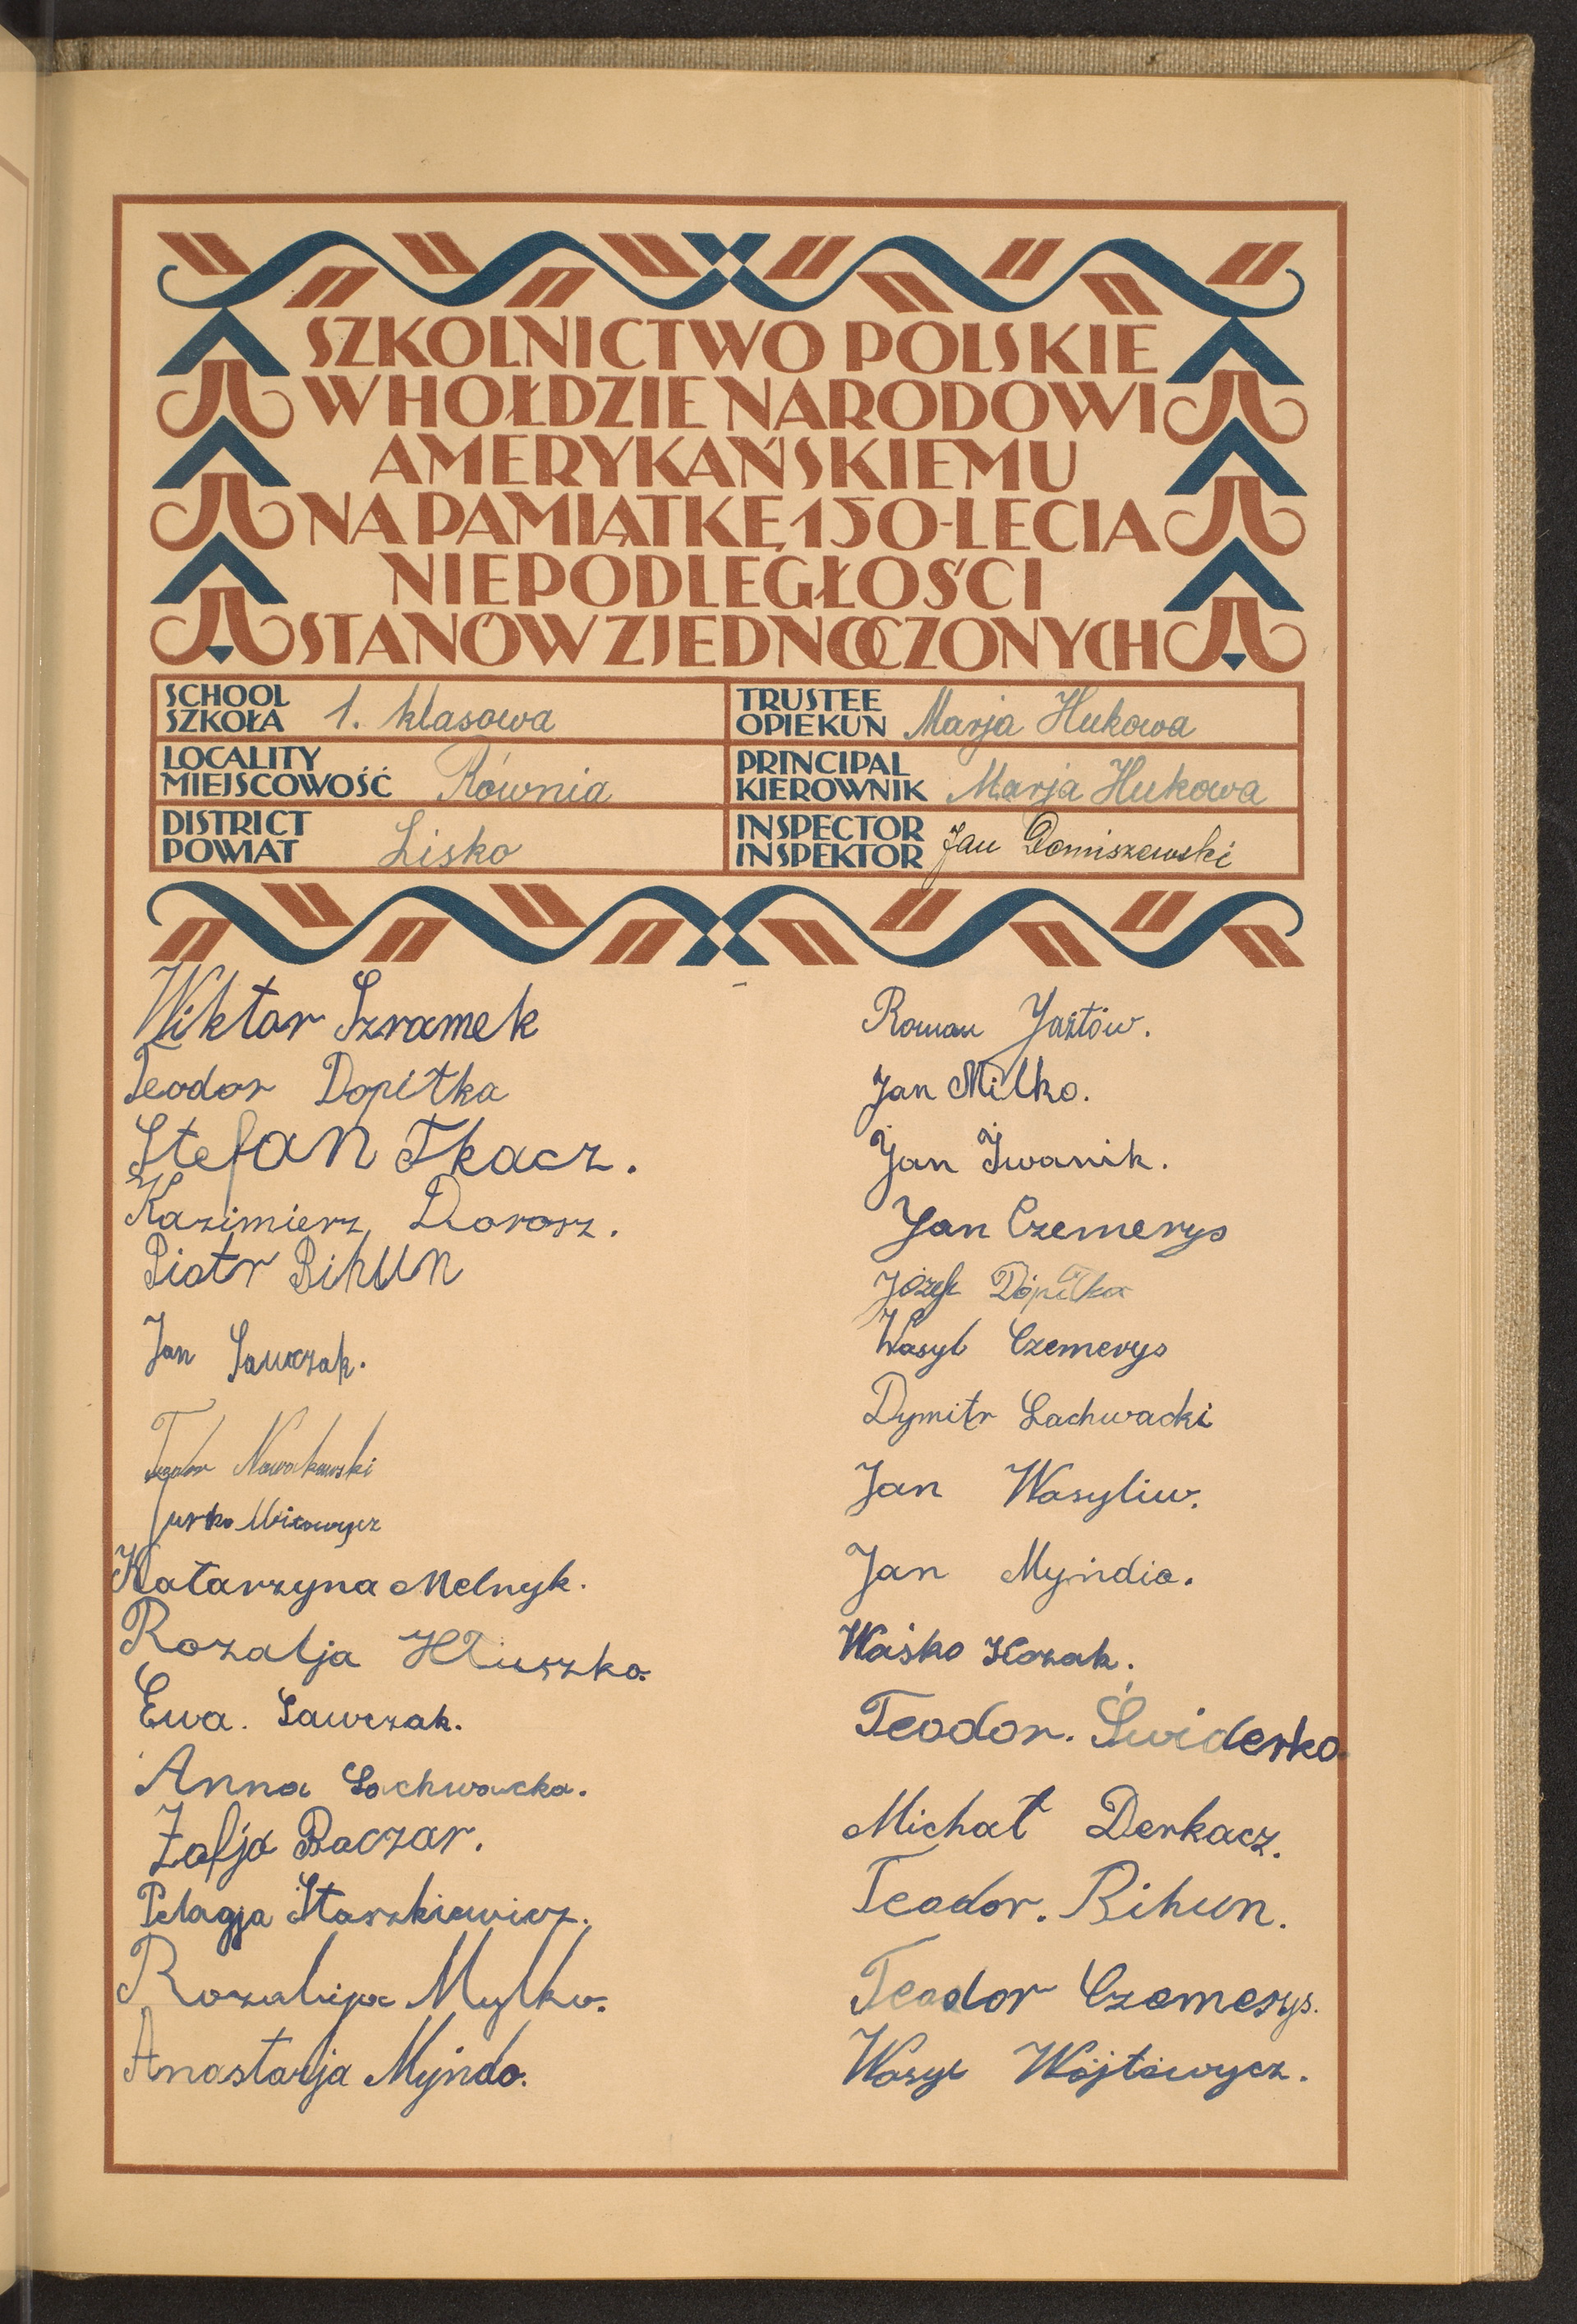 SZKOLNICTWO POLSKIE
W HOŁDZIE NARODOWI
AMERYKAŃSKIEMU
NA PAMIĄTKĘ 150-LECIA
NIEPODLEGŁOŚCI
STANÓW ZJEDNOCZONYCH
SCHOOL
SZKOŁA 1. klasowa
TRUSTEE
OPIEKUN Marja Hukowa
LOCALITY
MIEJSCOWOŚĆ Równia
PRINCIPAL
KIEROWNIK Marja Hukowa
DISTRICT
POWIAT Lisko
INSPECTOR
INSPEKTOR Jan Domiszewski
Wiktor Szramek
Teodor Dopitka
Stefan Tkacz.
Kazimierz Dororz.
Piotr Bihun
Jan Sawczak.
Teodor Nowakowski
Jurko
Katarzyna Melnyk.
Rozalja Hluszko.
Ewa. Sawczak.
Anna Lachwacka.
Zofja Baczar.
Pelagja Staszkiewicz.
Rozalija Mylko.
Anastazja Myndo.
Roman
Jan Milko.
Jan Iwanik.
Jan Czemerys
Józef Dopitka
Wasyl Czemerys
Dymitr Lachwacki
Jan Wasyliw.
Jan Myndio.
Waśko Kozak.
Teodor. Świderko.
Michał Derkacz.
Teodor. Bihun.
Teodor Czemerys.
Wasyl Wojtowycz.